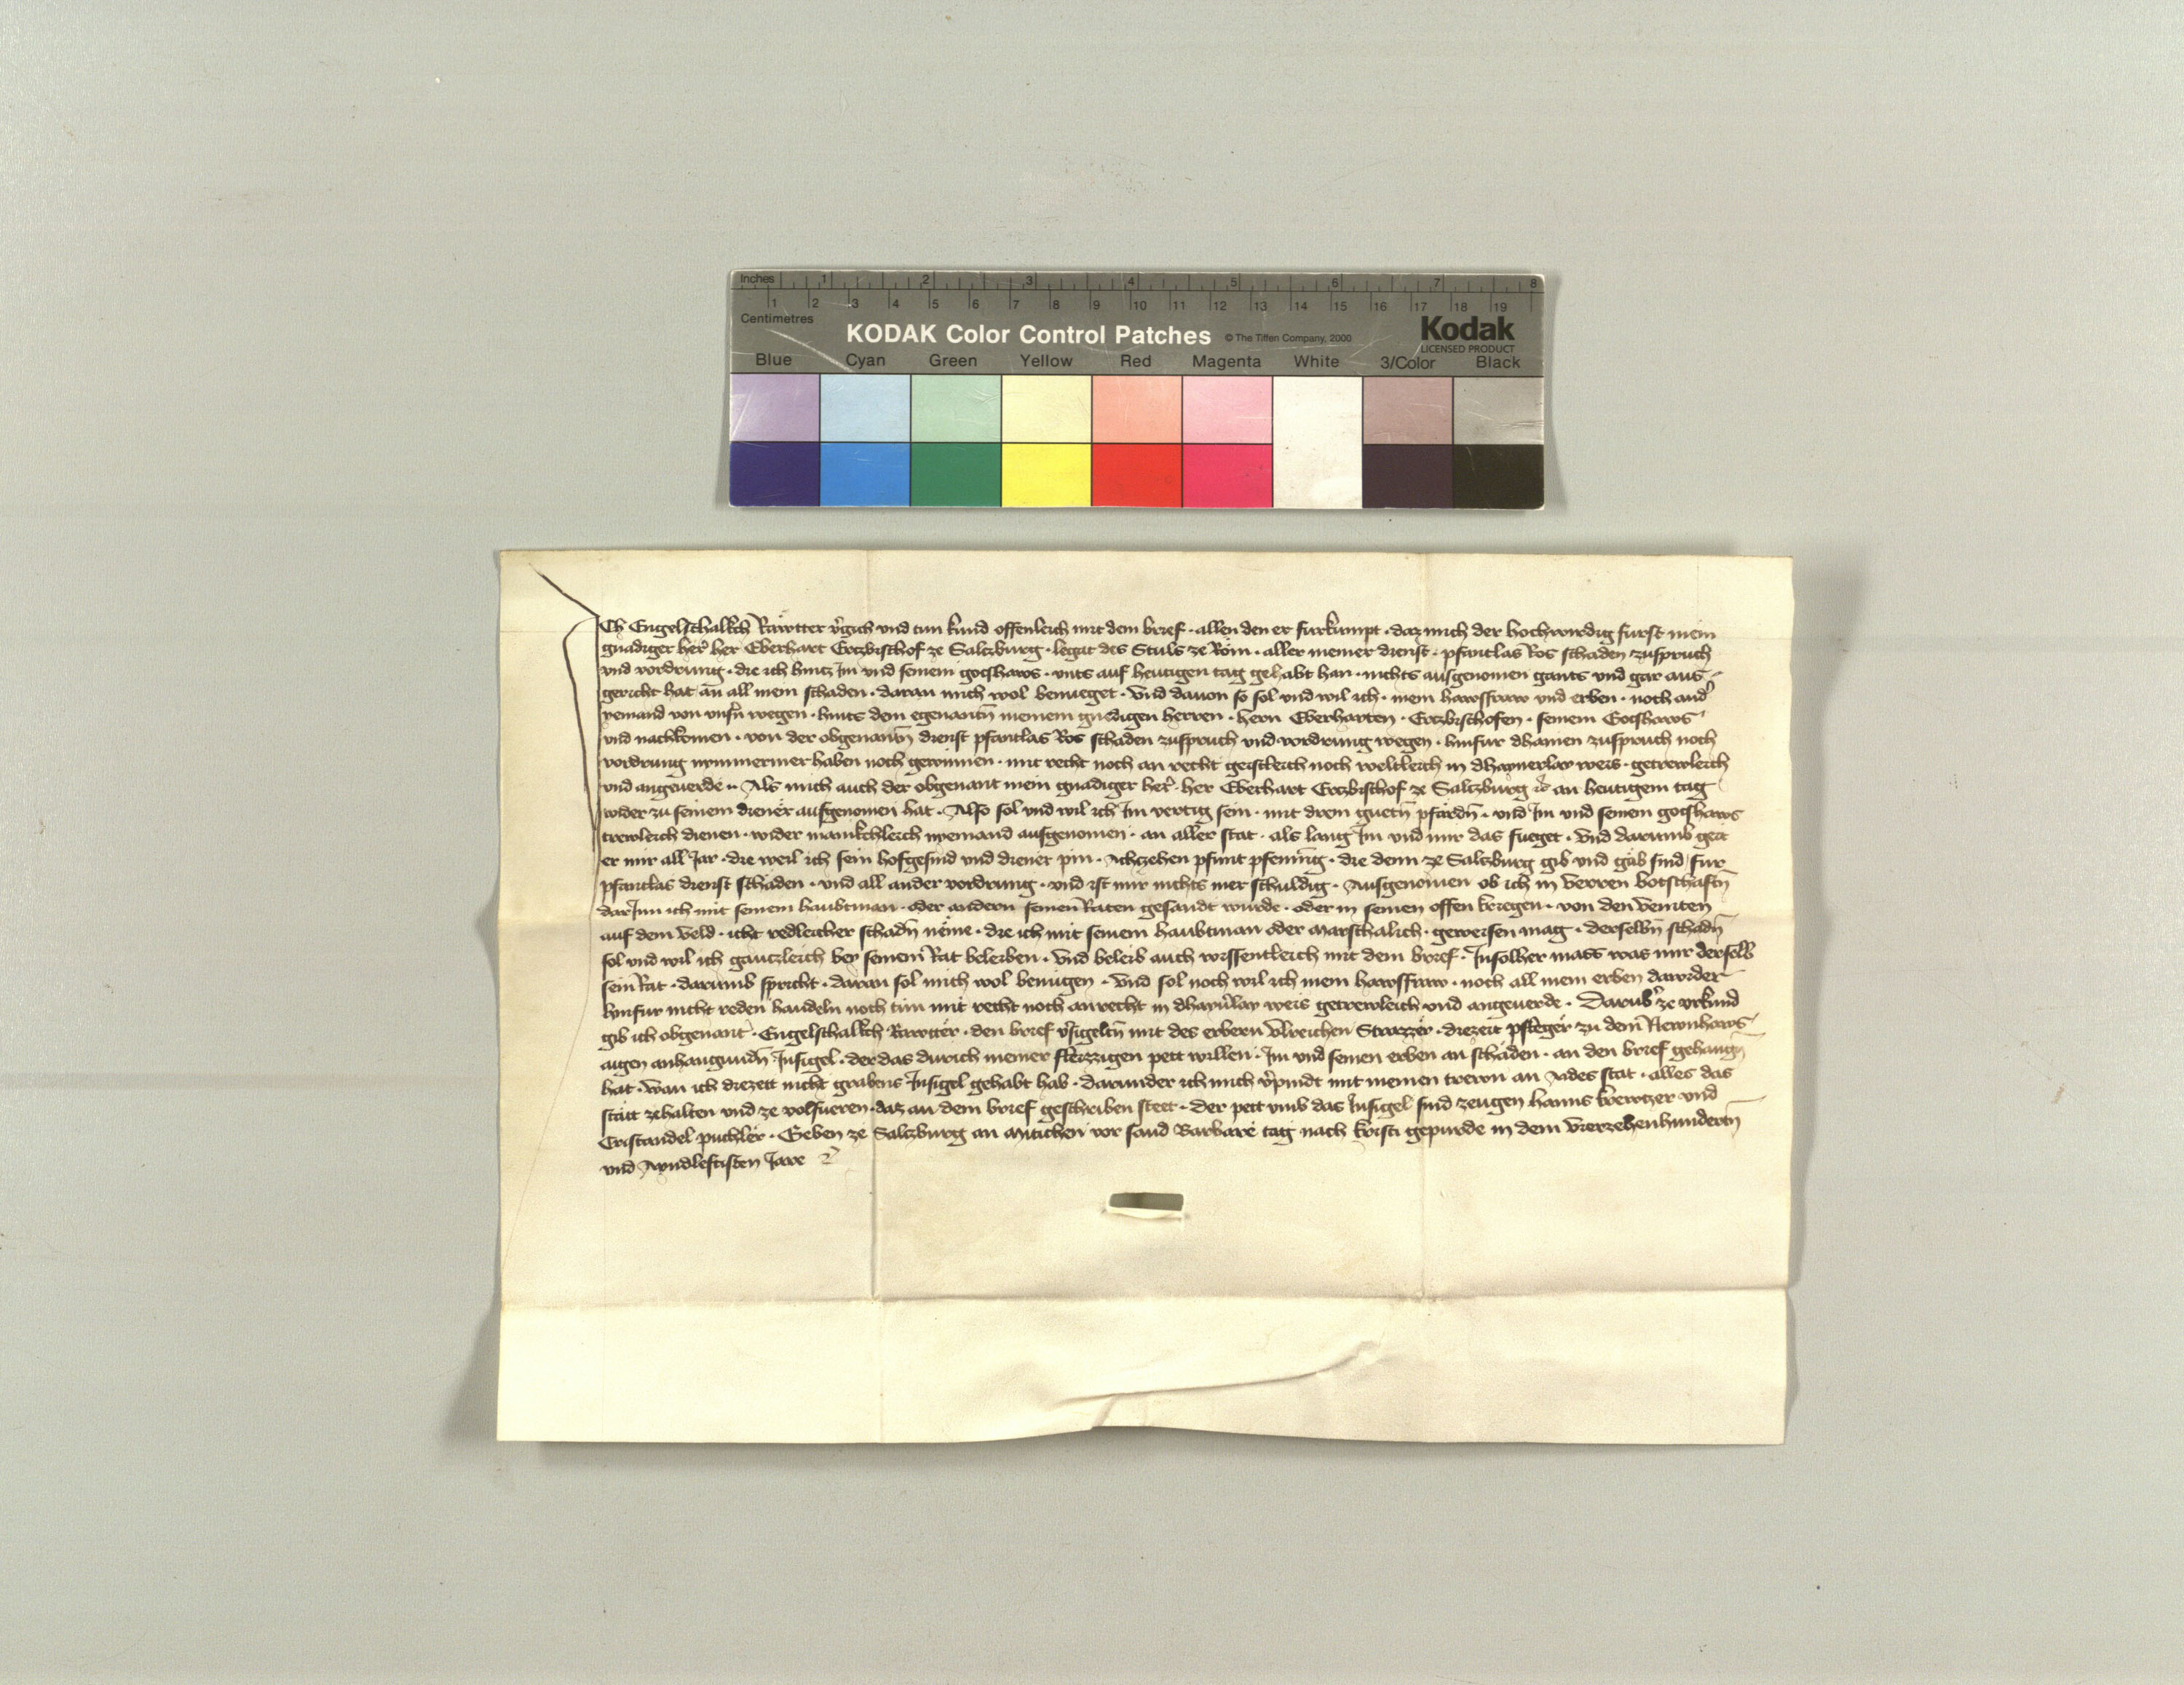 Inches 1 2 3 4 5 6 7 8
1 2 3 4 5 6 7 8 9 10 11 12 13 14 15 16 17 18 19
Centimetres
KODAK Color Control Patches © The Tiffen Company, 2000 Kodak
LICENSED PRODUCT
Blue Cyan Green Yellow Red Magenta White 3/Color Black
Ich Engelschalkch Räwtter v̓gich vnd tun kund offenleich mit dem brief · allen den er furkumpt · daz mich der hochwirdig furst mein
gnädiger her̓ her Eberhart Ertzbischof ze Salczburg · legat des Stuls ze Röm · aller meiner dienst · pfantlas Ros schäden zuspruch
vnd vordrung · die ich hincz Im vnd seinem gotshaws · vnts auf heutigen tag gehabt han · nichts ausgenomen gants vnd gar aus
gericht hat an all mein schaden · daran mich wol benueget · Vnd dauon so sol vnd wil ich · mein hawsfraw vnd erben · noch and̓
yemand von vnsn̄ wegen · hints dem egenantn̄ meinem gnedigen herren · hern Eberharten · Ertzbischofen · seinem Gotshaws
vnd nachkomen · von der obgenantn̄ dienst pfantlas Ros schäden zuspruch vnd vordrung wegen · hinfur dhainen zuspruch noch
vordrung nymmermer haben noch gewinnen · mit recht noch an recht geistleich noch weltleich in dhaynerlay weis · getrewleich
vnd angeuerde ·· Als mich auch der obgenant mein gnädiger her̓ · her Eberhart Ertzbischof ze Salczburg ꝛc̓ an heutigem tag
wider zu seinem diener aufgenomen hat · Also sol vnd wil ich Im vertig sein · mit drein guetn̄ pfärdn̄ · vnd Im vnd seinem gotshaws
trewleich dienen · wider mänikchleich nyemand ausgenomen · an aller stat · als lang Im vnd mir das fueget · Vnd darumb geit
er mir all Jar · die weil ich sein hofgesind vnd diener pin · Achczehen pfunt pfennīg · die denn ze Salczburg gib vnd gäb sind fur
pfantlas dienst schäden · vnd all ander vordrung · vnd ist mir nichts mer schuldig · Ausgenomen ob ich in verren botschaftn̄
dar Inn ich mit seinem haubtman · oder andern seinen Räten gesandt wurde · oder in seinen offen kriegen · von den Veinten
auf dem Veld · icht redleicher schadn̄ näme · die ich mit seinem haubtman oder Marschalich · geweisen mag · derselbn̄ schadn̄
sol vnd wil ich gänczleich bey seinem Rat beleiben · Vnd beleib auch wissentleich mit dem brief · Insölher mass was mir derselb
sein Rat · darumb spricht · daran sol mich wol benügen · Vnd sol noch wil ich mein hawsfraw · noch all mein erben dawider
hinfur nicht reden handeln noch tun mit recht noch an recht in dhaynlay weis getrewleich vnd angeuerde · Darub̓ ze vrkund
gib ich obgenant · Engelschalkch Räwttër · den brief v̓sigeltn̄ mit des erbern Vlreichen Strazzër · diezeit pflegër zu dem Newnhaws
aigen anhangundn̄ Insigel · der das durich meiner fleizzigen pett willen · Im vnd seinen erben an schäden · an den brief gehangn̄
hat · wan ich diezeit nicht grabens Insigel gehabt hab · darunder ich mich v̓pindt mit meinen trewn an Aides stat · alles das
stätt zehalten vnd ze volfueren · daz an dem brief geschriben steet · der pett vmb das Insigel sind zeugen hanns vnd
Cristandel puchlër · Geben ze Salczburg an Mitichen vor sand Barbare tag nach kristi gepurde in dem Vierzehenhundertn̄
vnd Ayndleftisten Jare